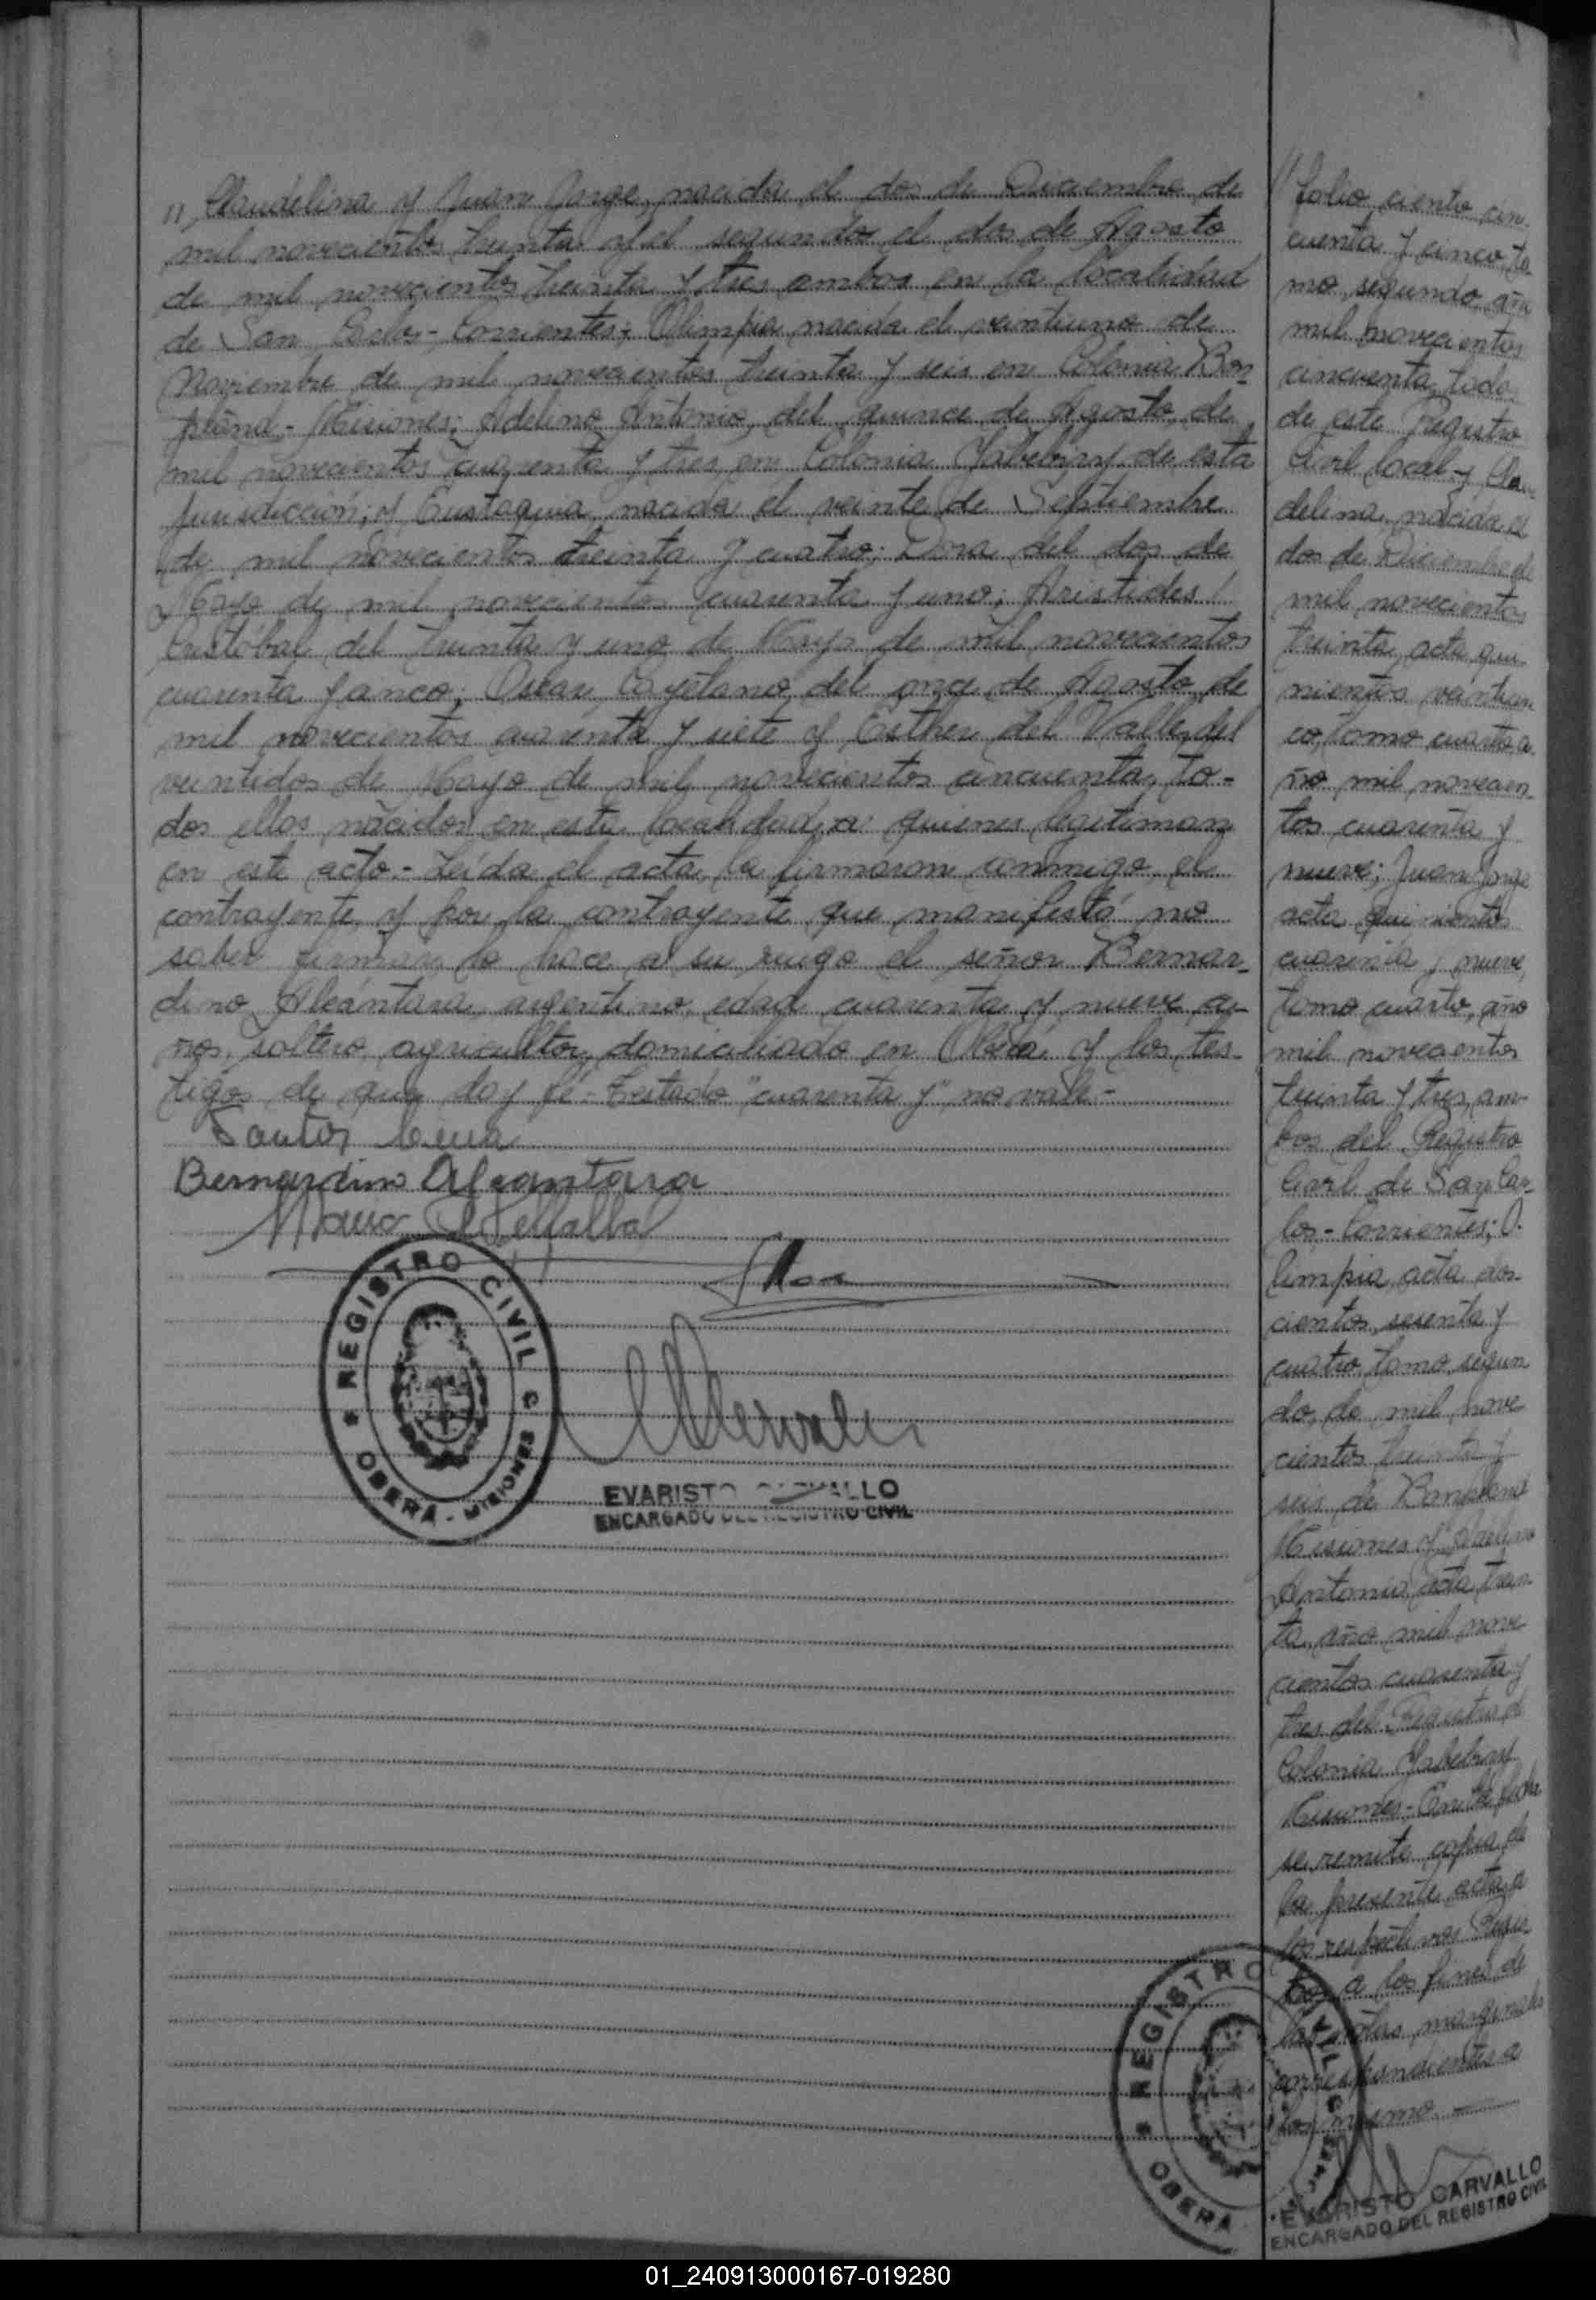 " Claudelina y Juan Jorge, nacida el dos de Diciembre de
mil novecientos treinta y el segundo el dos de Agosto
de mil novecientos treinta y tres ambos en la localidad
de San Carlos - Corrientes; Olimpia nacida el veintiuno de
Noviembre de mil novecientos treinta y seis en Colonia Bon-
pland - Misiones; Adelino Antonio, del quince de Agosto de
mil novecientos cuarenta y tres, en Colonia Yabebiry de esta
jurisdicción; y Eustaquia nacida el veinte de Septiembre
de mil novecientos treinta y cuatro; Dora del dos de
Mayo de mil novecientos cuarenta y uno; Aristides
Cristóbal del treinta y uno de Mayo de mil novecientos
cuarenta y cinco; Oscar Cayetano del once de Agosto de
mil novecientos cuarenta y siete y Esther del Valle, del
veintidos de Mayo de mil novecientos cincuenta, to-
dos ellos nacidos en esta localidad, a quienes legitiman
en este acto.- Leída el acta, la firmaron conmigo, el
contrayente y por la contrayente que manifestó no
saber firmar, lo hace a su ruego el señor Bernar-
dino Alcántara, argentino, edad cuarenta y nueve a-
ños, soltero, agricultor, domiciliado en Oberá y los tes-
tigos de que doy fé - Testado "cuarenta y" no vale.-
Santos
Bernardino Alcantara
REGISTRO CIVIL
OBERA - MISIONES
EVARISTO CARVALLO
ENCARGADO DEL REGISTRO CIVIL
// folio ciento cin-
cuenta y cinco, to-
mo segundo, año
mil novecientos
cincuenta, todos
de este Registro
Civil local - y Clau-
delina, nacida el
dos de Diciembre de
mil novecientos
treinta, acta qui-
nientos veinticin-
co, tomo cuarto a-
ño mil novecien-
tos cuarenta y
nueve; Juan Jorge
acta quinientos
cuarenta y nueve,
tomo cuarto, año
mil novecientos
treinta y tres, am-
bos del Registro
Civil de San Car-
los - Corrientes; O-
limpia, acta dos-
cientos sesenta y
cuatro, tomo segun-
do, de mil nove-
cientos treinta y
seis de Bonpland
Misiones y Adelino
Antonio, acta trein-
ta, año mil nove-
cientos cuarenta y
tres del Registro de
Colonia Yabebiry
Misiones - En la fecha
se remite copia de
la presente acta a
los respectivos Regis-
tros a los fines de
las notas marginales
correspondientes a
los mismo.
REGISTRO CIVIL
OBERA
EVARISTO CARVALLO
ENCARGADO DEL REGISTRO CIVIL
01_240913000167-019280